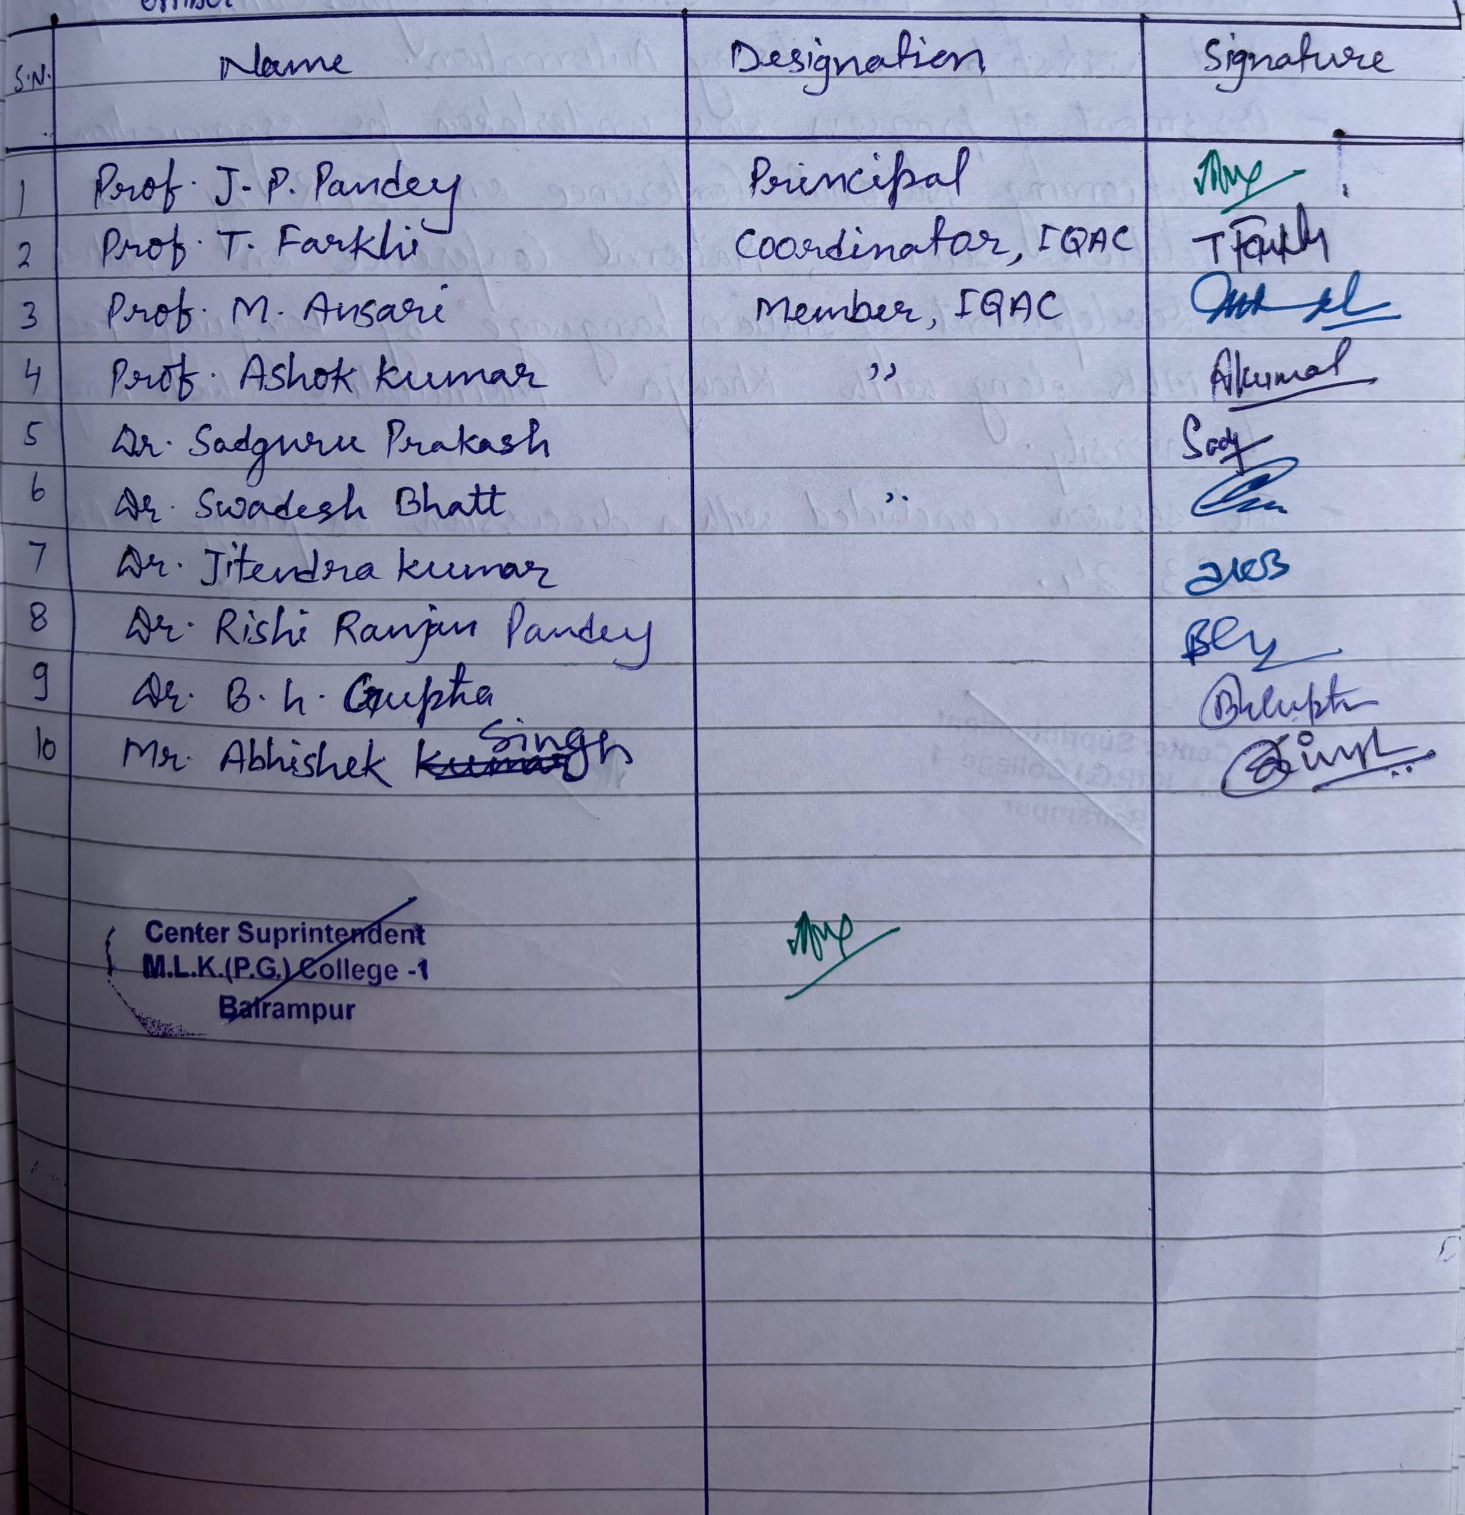 S.N. Name Designation Signature
1 Prof. J. P. Pandey Principal
2 Prof. T. Farkhi Coordinator, IQAC T Farkhi
3 Prof. M. Ansari Member, IQAC
4 Prof. Ashok Kumar ,, AKumar
5 Dr. Sadguru Prakash Sady
6 Dr. Swadesh Bhatt ,,
7 Dr. Jitendra Kumar
8 Dr. Rishi Ranjan Pandey
9 Dr. B. L. Gupta BLGupta
10 Mr. Abhishek Kumar Singh Singh
Center Suprintendent
M.L.K.(P.G.) College -1
Balrampur